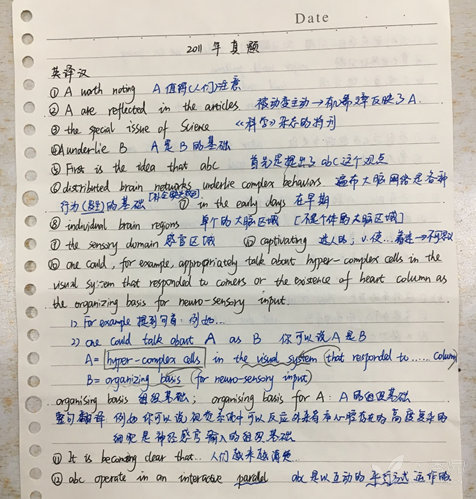 Date
2011 年 真 题
英译汉
① A worth noting A 值得(人们)注意
② A are reflected in the articles. 被动变主动→有的文章反映了A.
③ the special issue of Science 《科学》杂志的特刊
④ A underlie B A 是 B 的基础
⑤ First is the idea that abc 首先是提出了 abc 这个观点
⑥ distributed brain networks underlie complex behaviors 遍布大脑网络是各种
行为(复杂)的基础 ⑦ in the early days 在早期
⑧ individual brain regions 单个的大脑区域 [不是个体的大脑区域]
⑨ the sensory domain 感官区域 ⑩ captivating 迷人的; v. 使...着迷
⑩ one could, for example, appropriately talk about hyper-complex cells in the
visual system that responded to corners or the existence of heart column as
the organizing basis for neuro-sensory input.
1) For example 提到句首: 例如...
2) one could talk about A as B 你可以说 A 是 B
A = hyper-complex cells in the visual system (that responded to ...... column)
B = organizing basis (for neuro-sensory input)
organising basis 组织基础; organising basis for A: A的组织基础
整句翻译 例如你可以说视觉系统中可以反应
细胞是神经感官输入的组织基础
⑪ It is becoming clear that... 人们越来越清楚...
⑫ abc operate in an interactive parallel abc 是以互动的平行方式运作的